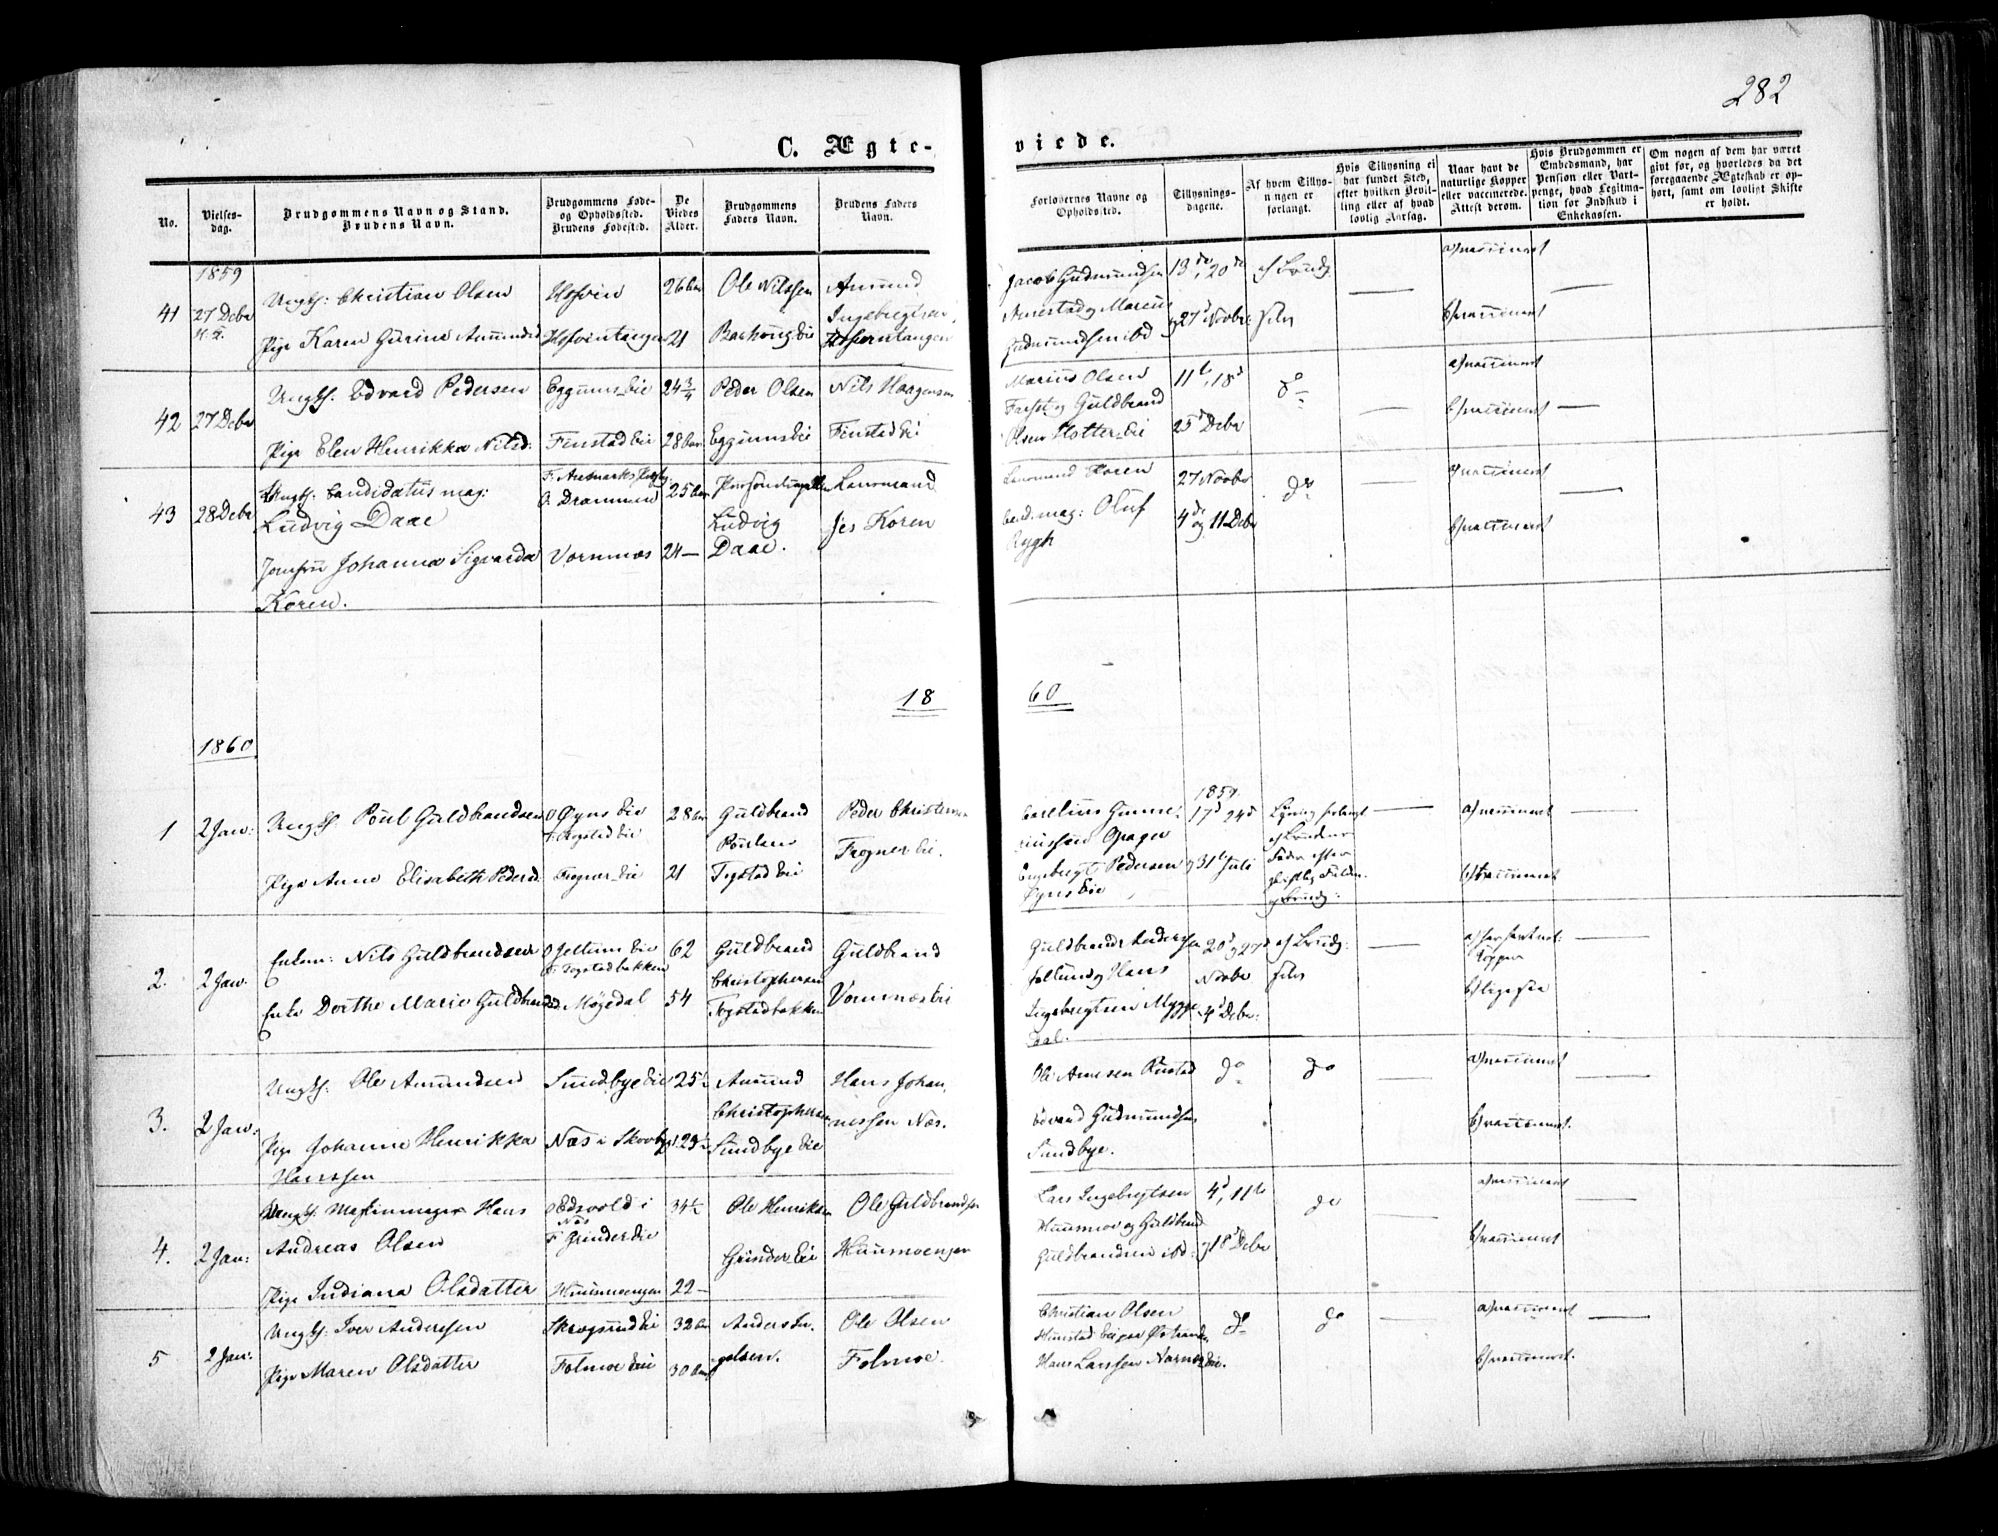 282
C. Ægte-
viede.
No.
Vielses-
dag.
Brudgommens Navn og Stand.
Brudens Navn.
Brudgommens Føde-
og Opholdssted.
Brudens Fødested.
De
Viedes
Alder.
Brudgommens
Faders Navn.
Brudens Faders
Navn.
Forlovernes Navne og
Opholdssted.
Tillysnings-
dagene.
Af hvem Tillys-
ningen er
forlangt.
Hvis Tillysning ei
har fundet Sted,
efter hvilken Bevil-
ling eller af hvad
lovlig Aarsag.
Naar havt de
naturlige Kopper
eller vaccinerede.
Attest derom.
Hvis Brudgommen er
Embedsmand, har
Pension eller Vart-
penge, hvad Legitima-
tion for Indskud i
Enkekassen.
Om nogen af dem har været
gift før, og hvorledes da det
foregaaende Ægteskab er op-
hørt, samt om lovligt Skifte
er holdt.
1859
41 27 Debr
Ungk: Christian Olsen
Pige Karen Gurine Amundsd
Hofvin
Hofvintangen
26
21
Ole Nilssen
Amund
Ingebrigtsen
Jacob Gudmundsen
Gudmundsen ibd
13de, 20de
27 Novbr
a) vaccineret
b) vaccineret
42 27 Debr
Ungk. Edvard Pedersen
Pige Elen Henrikka Nilsd:
Eggumseie
Finstadeie
24 3/4
28
Peder Olsen
Eggumseie
Nils Haagensen
Finstadeie
Marius Olsen
og Guldbrand
Olsen Holter Eie
11te, 18de
25 Debr
do
a) vaccineret
b) vaccineret
43 28 Debr
Ungk: Candidatus mag:
Ludvig Daae
Jomfru Johanna Sigvarda
Koren.
F. Aremarks
O: Drammen
Vormnæs
25
24
Ludvig
Daae.
Lensmand
Jes Koren
Lensmand Koren
Cand. mag: Oluf
Rygh
27 Novbr
4de og 11 Debr
do
a) vaccineret
b) vaccineret
18 60
1860
1 2 Jan:
Ungk. Poul Guldbrandsen
Pige Anne Elisabeth Pedersd.
O Øyns Eie
F. Togstad Eie
Frogner Eie
28
21
Guldbrand
Poulsen
Togstad Eie
Peder Christensen
Frogner Eie.
Engebregt Pedersen
Øyns Eie
1859
17de 24de
31te Juli
a) vaccineret
b) vaccineret
2. 2 Jan.
Enkem: Nils Guldbrandsen
Enke Dorthe Marie Guldbrandsd.
O Jellum Eie
F. Togstadbakken
Møgedal
62
54
Guldbrand
Christophersen
Togstadbakken
Guldbrand
Vormnæs Eie
Guldbrand Andersen
Jellum og Hans
Ingebregtsen Mygge
dal.
20de og 27de
Novbr
4de Debr:
af Brudg:
Kopper
b) ligesaa
3. 2 Jan:
Ungk: Ole Amundsen
Pige Johanne Henrikka
Hanssen
Sundbye Eie
Næs i Skovbyg.
25
Amund
Christophersen
Sundbye Eie
Hans Johan
nessen Næs.
Ole Arnesen Rustad
Edvard Gudmundsen
Sundbye.
do
do
a) vaccineret
b) vaccineret.
4. 2 Jan:
Ungk. Hans
Andreas Olsen
Pige Indiana Olsdatter
O Edsvold i
Næs
F Grinder Eie
Huumoengen
34½
22
Ole Henriksen
Grinder Eie
Ole Guldbrandsen
Huumoengen
Lars Ingebrigtsen
Huumoe og Guldbrand
Guldbrandsen ibd:
4de, 11te
og 18de Debr
do
a) vaccineret
b) vaccineret
5 2 Jan:
Ungk: Iver Andersen
Pige Maren Olsdatter
Skrogsrud Eie
Folmoe Eie
32
30
Anders In.
gelsen.
Ole Olsen
Folmoe.
Christian Olsen
Hans Larssen
do
do
a) vaccineret
b) vaccineret.